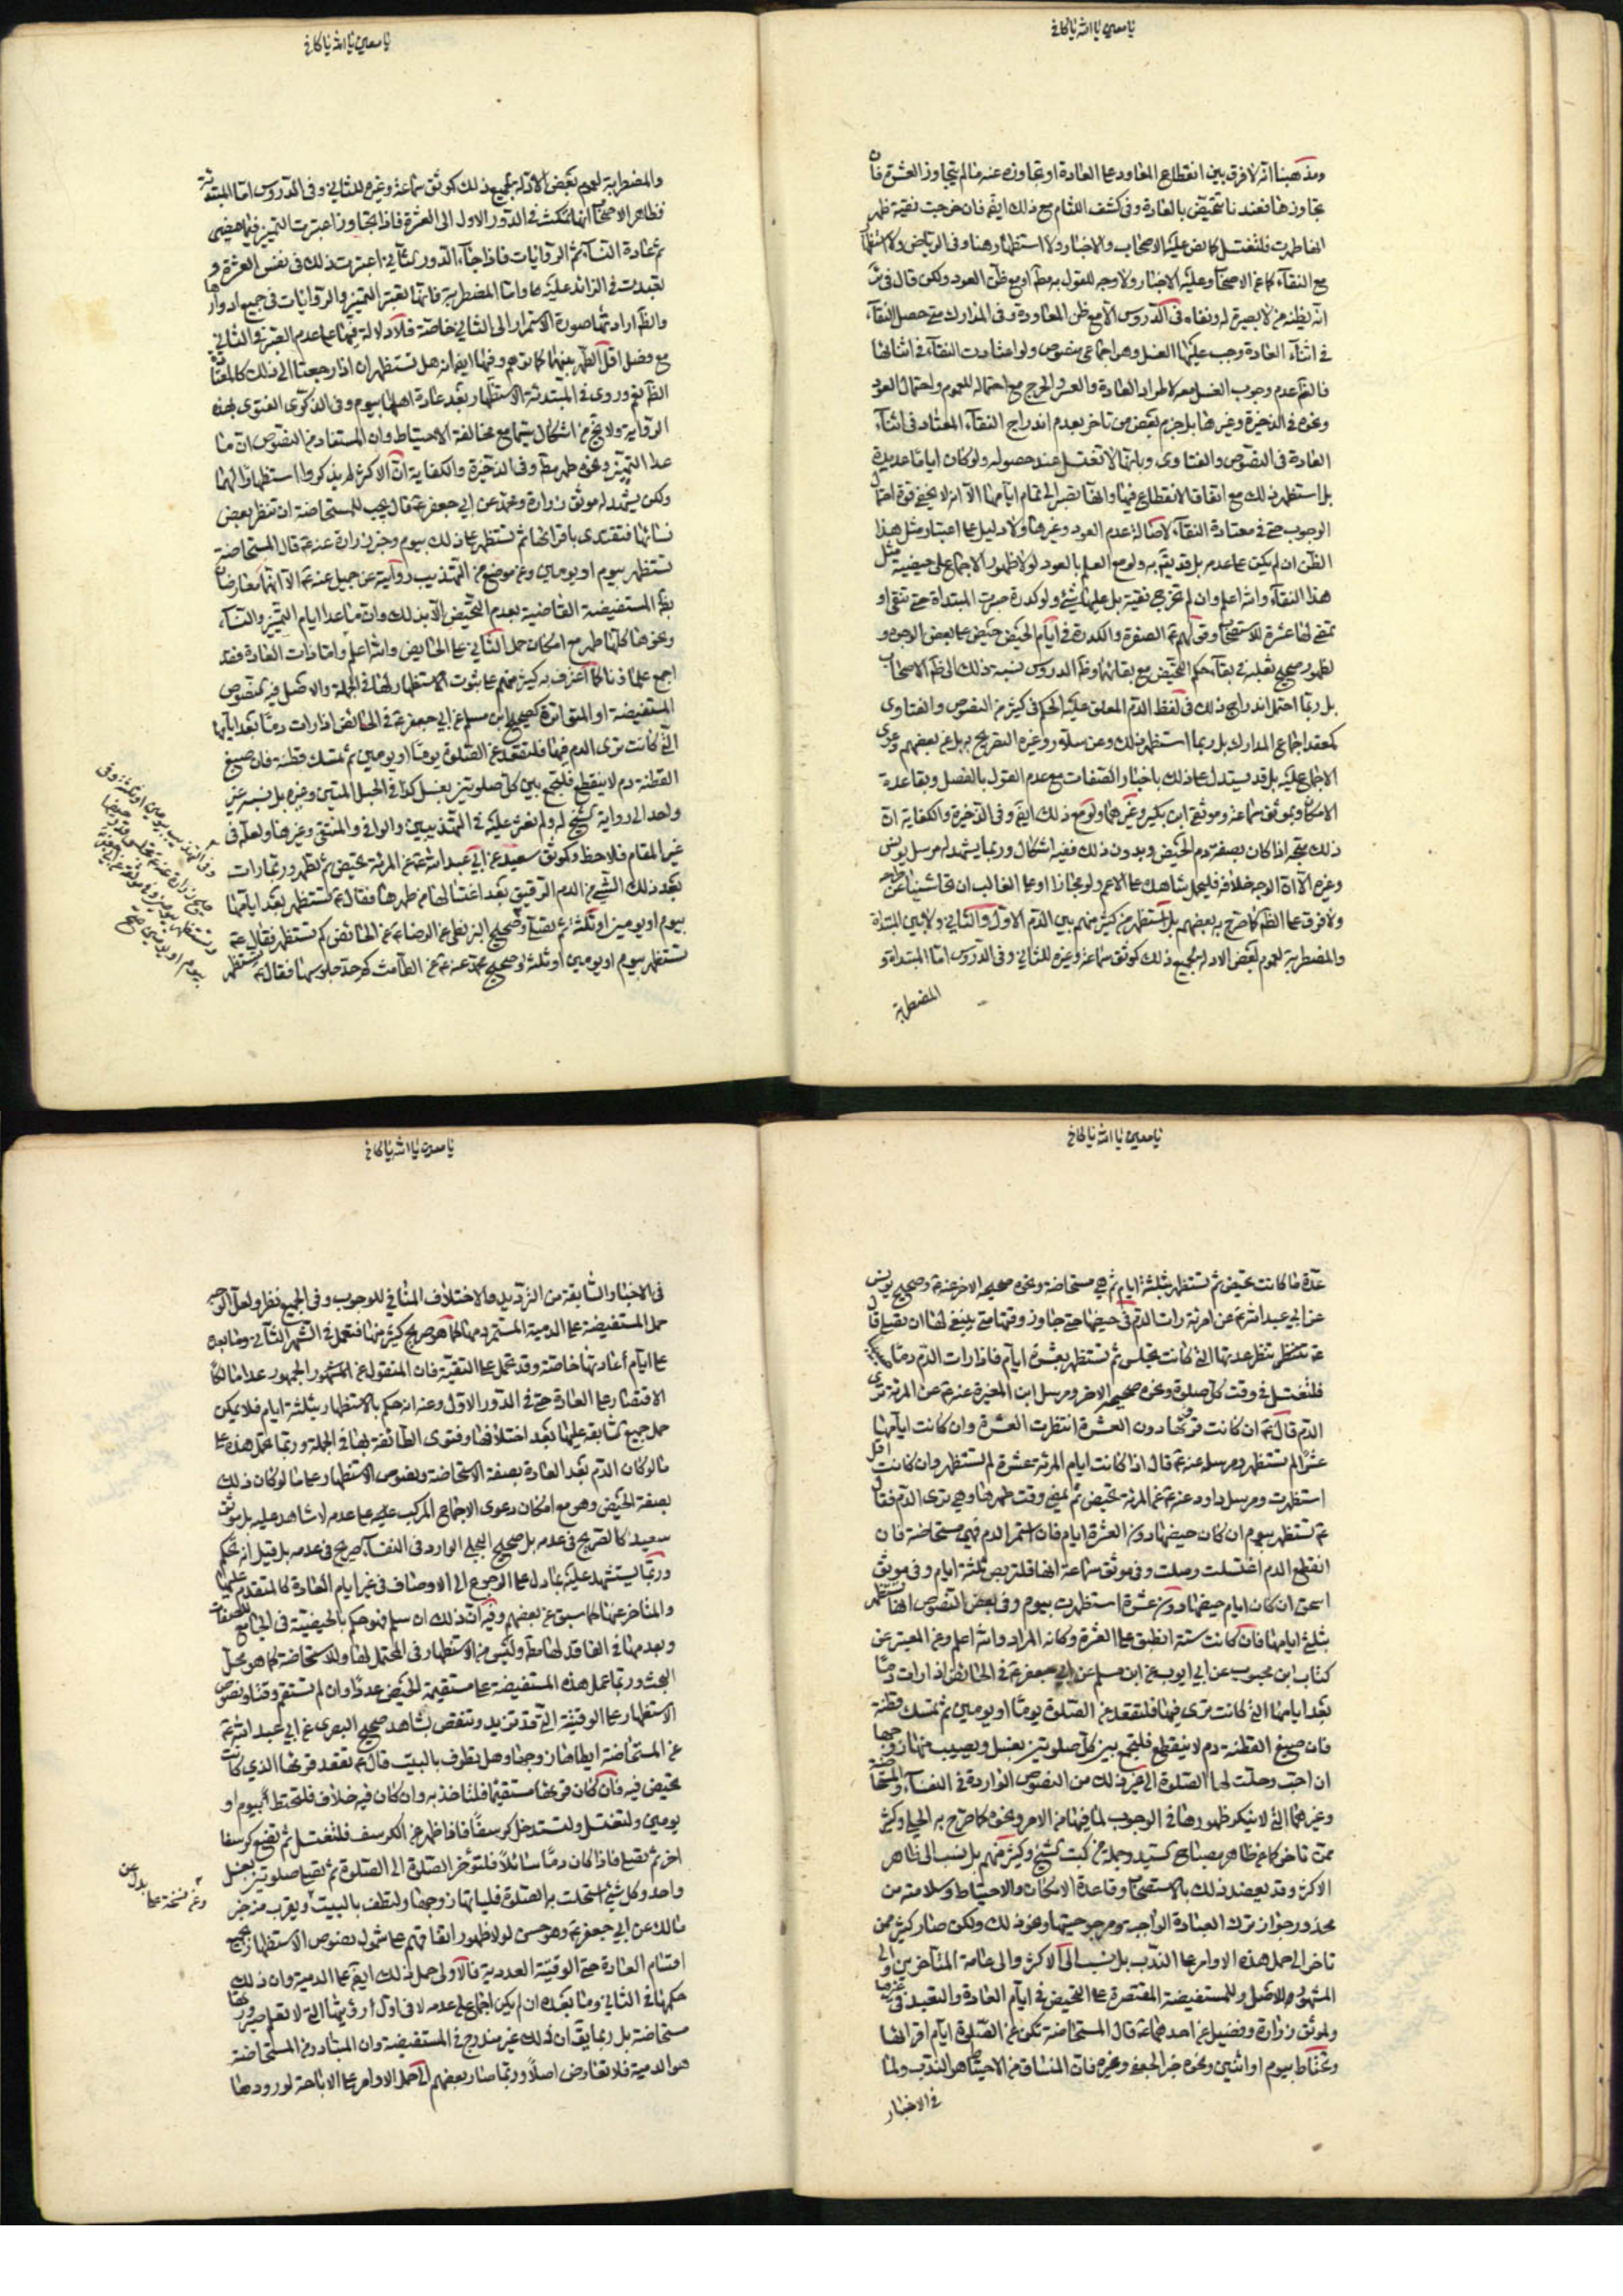 يا معين يا الله يا كافي
ومذهبنا انه لا فرق بين انقطاع المعاود على العادة او تجاوزه عنه ما لم يتجاوز العشرة فان
تجاوزها فعندنا تتحيض بالعادة وفي كشف اللثام مع ذلك ايض فان خرجت نقية ظهر
انها طهرت فلتغتسل كما نص عليه الاصحاب والاخبار ولا استظهار هنا وفي الرياض ولا استظهار
مع النقاء كما عن الاصحاب وعليه الاخبار ولا وجه للقول به مط او مع ظن العود ولكن قال في
انه يظنه من لا بصيرة له ونفاه في الدروس الا مع ظن المعاودة وفي المدارك متى حصل النقاء
في اثناء العادة وجب عليها الغسل وهو اجماعي منصوص ولو اعتادت النقاء في اثنائها
فالظ عدم وجوب الغسل معه لاطراد العادة والعسر والحرج مع احتماله للعموم واحتمال العود
ونحوه في الذخيرة وغيرها بل جزم بعض من تاخر بعدم اندراج النقاء المعتاد في اثناء
العادة في النصوص والفتاوى وبانها لا تغتسل عند حصوله ولو كان اياما عديدة
بل استظهر ذلك مع اتفاق الانقطاع فيها وانها تصبر الى تمام ايامها الا انه لا يخفى قوة احتمال
الوجوب حتى في معتادة النقاء لاصالة عدم العود وغيرها ولا دليل على اعتبار مثل هذا
الظن ان لم يكن على عدمه بل قد يتم به ولو مع العلم بالعود لولا ظهور الاجماع على حيضية مثل
هذا النقاء والله اعلم وان لم تخرج نقية بل عليها شيء ولو كدرة صبرت المبتداة حتى تنقى او
تمضي لها عشرة للاستصحاب وقولهم ع الصفرة والكدرة في ايام الحيض حيض على بعض الوجوه و
لظهور صحيح نقله في بقاء حكم التحيض مع بقائها وظ الدروس نسبة ذلك الى ظ الاصحاب
بل ربما احتمل اندراج ذلك في لفظ الدم المعلق عليه الحكم في كثير من النصوص والفتاوى
كمعقد اجماع المدارك بل ربما استظهر ذلك وعن سلار وغيره التصريح به بل عن بعضهم دعوى
الاجماع عليه بل قد يستدل على ذلك باخبار الصفات مع عدم القول بالفصل وبقاعدة
الامكان وبموثق سماعة وموثق ابن بكير وغيرهما ولو مع ذلك ايض وفي الذخيرة والكفاية ان
ذلك متجه اذا كان بصفة دم الحيض وبدون ذلك ففيه اشكال وربما يشهد له مرسل يونس
وغيره الا ان الاوجه خلافه فليحمل شاهدك على الاعم ولو مجازا او على الغالب ان تحاشينا عن
ولا فرق على الظ كما صرح به بعضهم بل استظهر من كثير منهم بين الدم الاول والثاني ولا بين المبتداة
والمضطربة للعموم لبعض الادلة بجميع ذلك كموثق سماعة وغيره للثاني وفي الدروس اما المبتداة و
المضطربة
يا معين يا الله يا كافي
والمضطربة للعموم لبعض الادلة بجميع ذلك كموثق سماعة وغيره للثاني وفي الدروس اما المبتدئة
فظاهر الاصحاب انها تمكث في الدور الاول الى العشرة فاذا تجاوز اعتبرت التميز فيما مضى
ثم عادة النساء ثم الروايات فاذا جاء الدور الثاني اعتبرت ذلك في نفس العشرة و
تعبدت في الزائد عليه عا واما المضطربة فانها تعتبر التميز والروايات في جميع ادوارها
والظ ارادتها صورة الاستمرار الى الثاني خاصة فلا دلالة فيها على عدم العشرة في الثاني
مع فصل اقل الطهر بينهما كما توهم وفيها ايض انه هل تستظهران اذا رجعتا الى ذلك كالمعتادة
الظ نعم وروي في المبتدئة الاستظهار بعد عادة اهلها بيوم وفي الذكرى الفتوى بهذه
الرواية ولا يخ من اشكال سيما مع مخالفة الاحتياط وان المستفاد من النصوص ان ما
عدا التميز ونحوه طهر مط وفي الذخيرة والكفاية ان الاكثر لم يذكروا استظهارا لهما
ولكن يشهد له موثق زرارة ومحمد عن ابي جعفر ع قال يجب للمستحاضة ان تنظر بعض
نسائها فتقتدي باقرائها ثم تستظهر على ذلك بيوم وخبر زرارة عنه ع قال المستحاضة
تستظهر بيوم او يومين وعن موضع من التهذيب رواية عن جميل عنه ع الا انها معارضان
بظ المستفيضة القاضية بعدم التحيض الا بذلك وان ما عدا ايام التميز والنساء
ونحوها كلها طهر مع امكان حمل الثاني على الحائض والله اعلم واما ذات العادة فقد
اجمع علماؤنا كما اعترف به كثير منهم على ثبوت الاستظهار لها في الجملة والاصل فيه النصوص
المستفيضة او المتواترة كصحيح ابن مسلم عن ابي جعفر ع في الحائض اذا رات دما بعد ايامها
التي كانت ترى الدم فيها فلتقعد عن الصلوة يوما او يومين ثم تمسك قطنة فان صبغ
القطنة دم لا ينقطع فلتجمع بين كل صلوتين بغسل كذا في الحبل المتين وغيره بل نسبه غير
واحد الى رواية الشيخ له ولم نعثر عليه في التهذيبين والوافي والمنتقى وغيرها ولعله في
غير المقام فلاحظ وكموثق سعيد عن ابي عبد الله ع في المرئة تحيض ثم تطهر وربما رات
بعد ذلك الشيء من الدم الرقيق بعد اغتسالها من طهرها فقال ع تستظهر بعد ايامها
بيوم او يومين او ثلثة ثم تصلي وصحيح البزنطي عن الرضا ع عن الحائض كم تستظهر فقال ع
تستظهر بيوم او يومين او ثلثة وصحيح محمد عنه ع عن الطامث كم حد جلوسها فقال ع تستظهر
يا معين يا الله يا كافي
عدة ما كانت تحيض ثم تستظهر بثلثة ايام ثم هي مستحاضة ونحوه صحيحه الاخر عنه ع وصحيح يونس
عن ابي عبد الله ع عن امرئة رات الدم في حيضها حتى جاوز وقتها متى ينبغي لها ان تصلي قال
ع تنتظر عدتها التي كانت تجلس ثم تستظهر بعشرة ايام فاذا رات الدم دما
فلتغتسل في وقت كل صلوة ونحوه صحيحه الاخر ومرسل ابن المغيرة عنه ع عن المرئة ترى
الدم قال ع ان كانت قرؤها دون العشرة انتظرت العشرة وان كانت ايامها
عشرا لم تستظهر ومرسله عنه ع قال اذا كانت ايام المرئة عشرة لم تستظهر وان كانت اقل
استظهرت ومرسل داود عنه ع عن المرئة تحيض ثم يمضي وقت طهرها وهي ترى الدم فقال
ع تستظهر بيوم ان كان حيضها دون العشرة ايام فان استمر الدم فهي مستحاضة فان
انقطع الدم اغتسلت وصلت وفي موثق سماعة انها فلتربص ثلثة ايام وفي موثق
اسحق ان كان ايام حيضها دون عشرة استظهرت بيوم وفي بعض النصوص انها تستظهر
بثلثي ايامها فان كانت ستة انطبق على العشرة وكانه المراد والله اعلم وعن المعتبر عن
كتاب ابن محبوب عن ابي ايوب عن ابن مسلم عن ابي جعفر ع في الحائض اذا رات دما
بعد ايامها التي كانت ترى فيها فلتقعد عن الصلوة يوما او يومين ثم تمسك قطنة
فان صبغ القطنة دم لا ينقطع فلتجمع بين كل صلوتين بغسل ويصيب منها زوجها
ان احب وحلت لها الصلوة الى غير ذلك من النصوص الواردة في النفساء والمستحاضة
وغيرهما التي لا ينكر ظهورها في الوجوب لما فيها من الامر ونحوه كما صرح به الحلي وكثير
ممن تاخر كما عن ظاهر مصباح السيد وجملة من كتب الشيخ وكثير منهم بل نسب الى ظاهر
الاكثر وقد يعضد ذلك بالاستصحاب وقاعدة الامكان والاحتياط وسلامته من
محذور جواز ترك العبادة الواجبة ومرجوحيتها ونحو ذلك ولكن صار كثير ممن
تاخر الى حمل هذه الاوامر على الندب بل نسب الى الاكثر والى عامة المتاخرين والى
المشهور للاصل وللمستفيضة المقتصرة على التحيض في ايام العادة والتعبد في غيرها
ولموثق زرارة وفضيل عن احدهما ع قال المستحاضة تكف عن الصلوة ايام اقرائها
وتحتاط بيوم او اثنين ونحوه خبر الجعفي وغيره فان المنساق من الاحتياط هو الندب ولما
في الاخبار
يا معين يا الله يا كافي
في الاخبار السابقة من الترديد والاختلاف المنافي للوجوب وفي الجميع نظر ولعل الاوجه
حمل المستفيضة على الدمية المستمر دمها كما هو صريح كثير منها فتعمل في الشهر الثاني وما بعده
على ايام عادتها خاصة وقد تحمل على التقية فان المنقول عن المشهور الجمهور عدا مالك
الاقتصار على العادة حتى في الدور الاول وعنه انه حكم بالاستظهار بثلثة ايام فلا يمكن
حمل جميع السابقة عليها بعد اختلافها وفتوى الطائفة بها في الجملة وربما تحمل هذه على
ما لو كان الدم بعد العادة بصفة الاستحاضة ونصوص الاستظهار على ما لو كان ذلك
بصفة الحيض وهو مع امكان دعوى الاجماع المركب على عدمه لا شاهد عليه بل موثق
سعيد كالصريح في عدمه بل صحيح البجلي الوارد في النفساء صريح في عدمه بل قيل انه تحكم
وربما يستشهد عليه بما دل على الرجوع الى الاوصاف في غير ايام العادة كالمتقدم عليها
والمتاخر عنها كما سبق عن بعضهم وفيه ان ذلك ان سلم فهو حكم بالحيضية في الجامع للصفات
وبعدمها في الفاقد لها مط وليس من الاستظهار في المحتمل لها وللاستحاضة كما هو محل
البحث وربما تحمل هذه المستفيضة على مستقيمة الحيض عددا وان لم تستقم وقتا ونصوص
الاستظهار على الوقتية التي قد تزيد وتنقص بشاهد صحيح البصري عن ابي عبد الله ع
عن المستحاضة ايطاها زوجها وهل تطوف بالبيت قال ع تقعد قرءها الذي كانت
تحيض فيه فان كان قرءها مستقيما فلتاخذ به وان كان فيه خلاف فلتحتط بيوم او
يومين ولتغتسل ولتستدخل كرسفا فاذا ظهر عن الكرسف فلتغتسل ثم تضع كرسفا
اخر ثم تصلي فاذا كان دما سائلا فلتؤخر الصلوة الى الصلوة ثم تصلي صلوتين بغسل
واحد وكل شيء استحلت به الصلوة فلياتها زوجها ولتطف بالبيت ويقرب منه خبر
مالك عن ابي جعفر ع وهو حسن لولا ظهور اتفاقهم على شمول نصوص الاستظهار لجميع
اقسام العادة حتى الوقتية العددية فالاولى حمل ذلك ايض على الدمية وان ذلك
حكمها في الثاني وما بعده ان لم يكن اجماع على عدمه لا في اول رؤيتها التي لا تعلم صيرورتها
مستحاضة بل ربما يق ان ذلك غير مندرج في المستفيضة وان المتبادر من المستحاضة
هو الدمية فلا تعارض اصلا وربما صار بعضهم الى حمل الاوامر على الاباحة لورودها